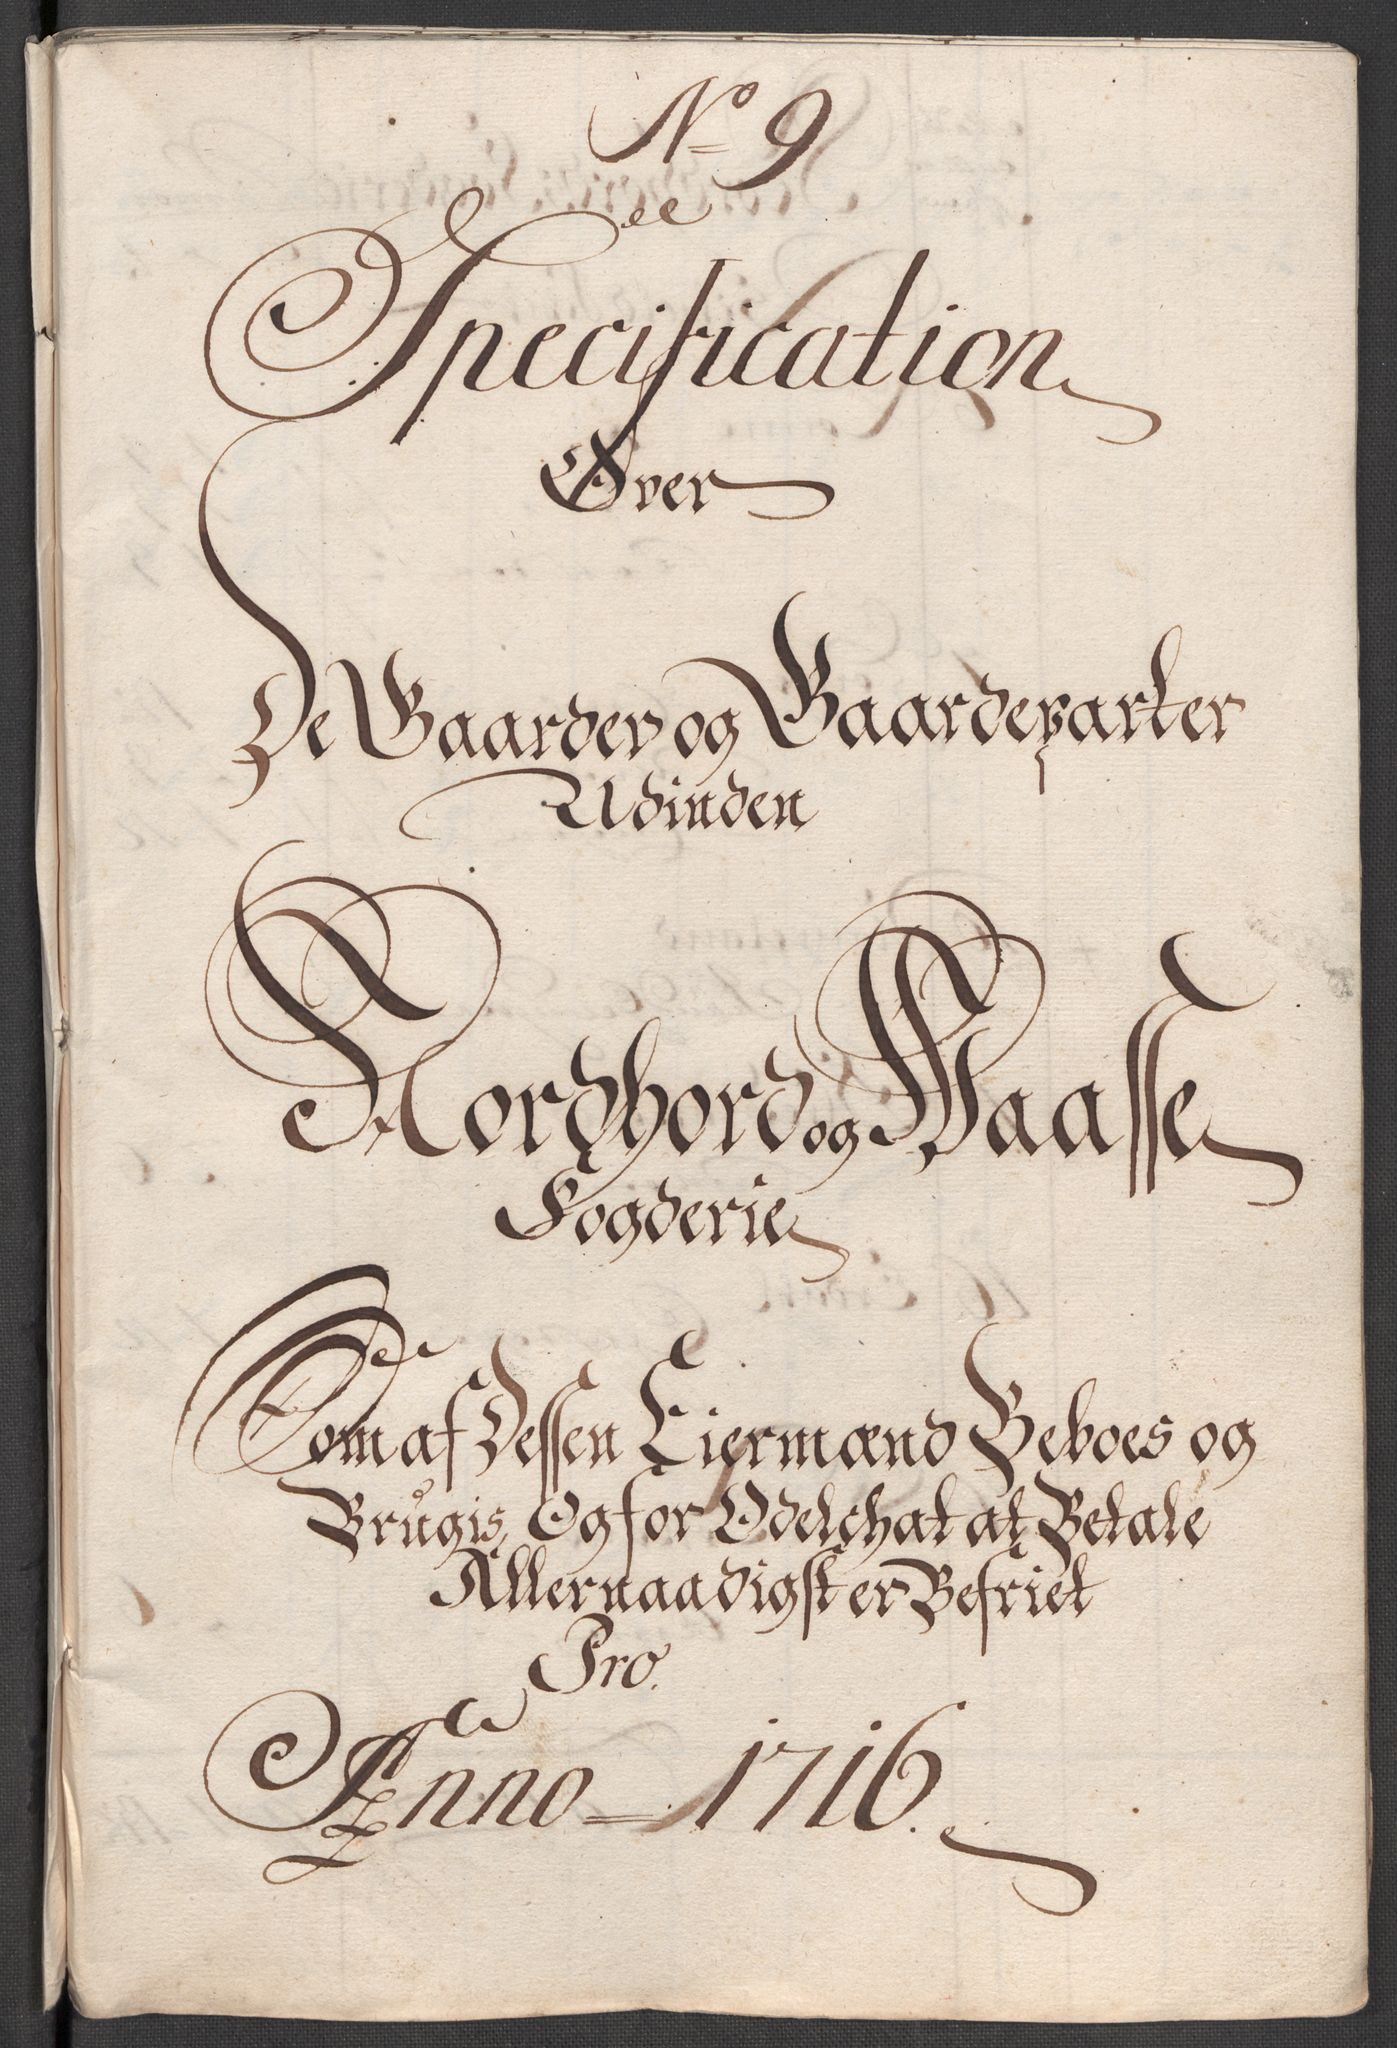 No 9
Specification
Over
De Gaarder og Gaardeparter
Udinden
Nordhord og Waasse
Fogderie
Som af Dessen Eiermænd Beboes og
Brugis, Og for Odelschat at Betale
Allernaadigst er Befriet
Pro.
Anno = 1716.